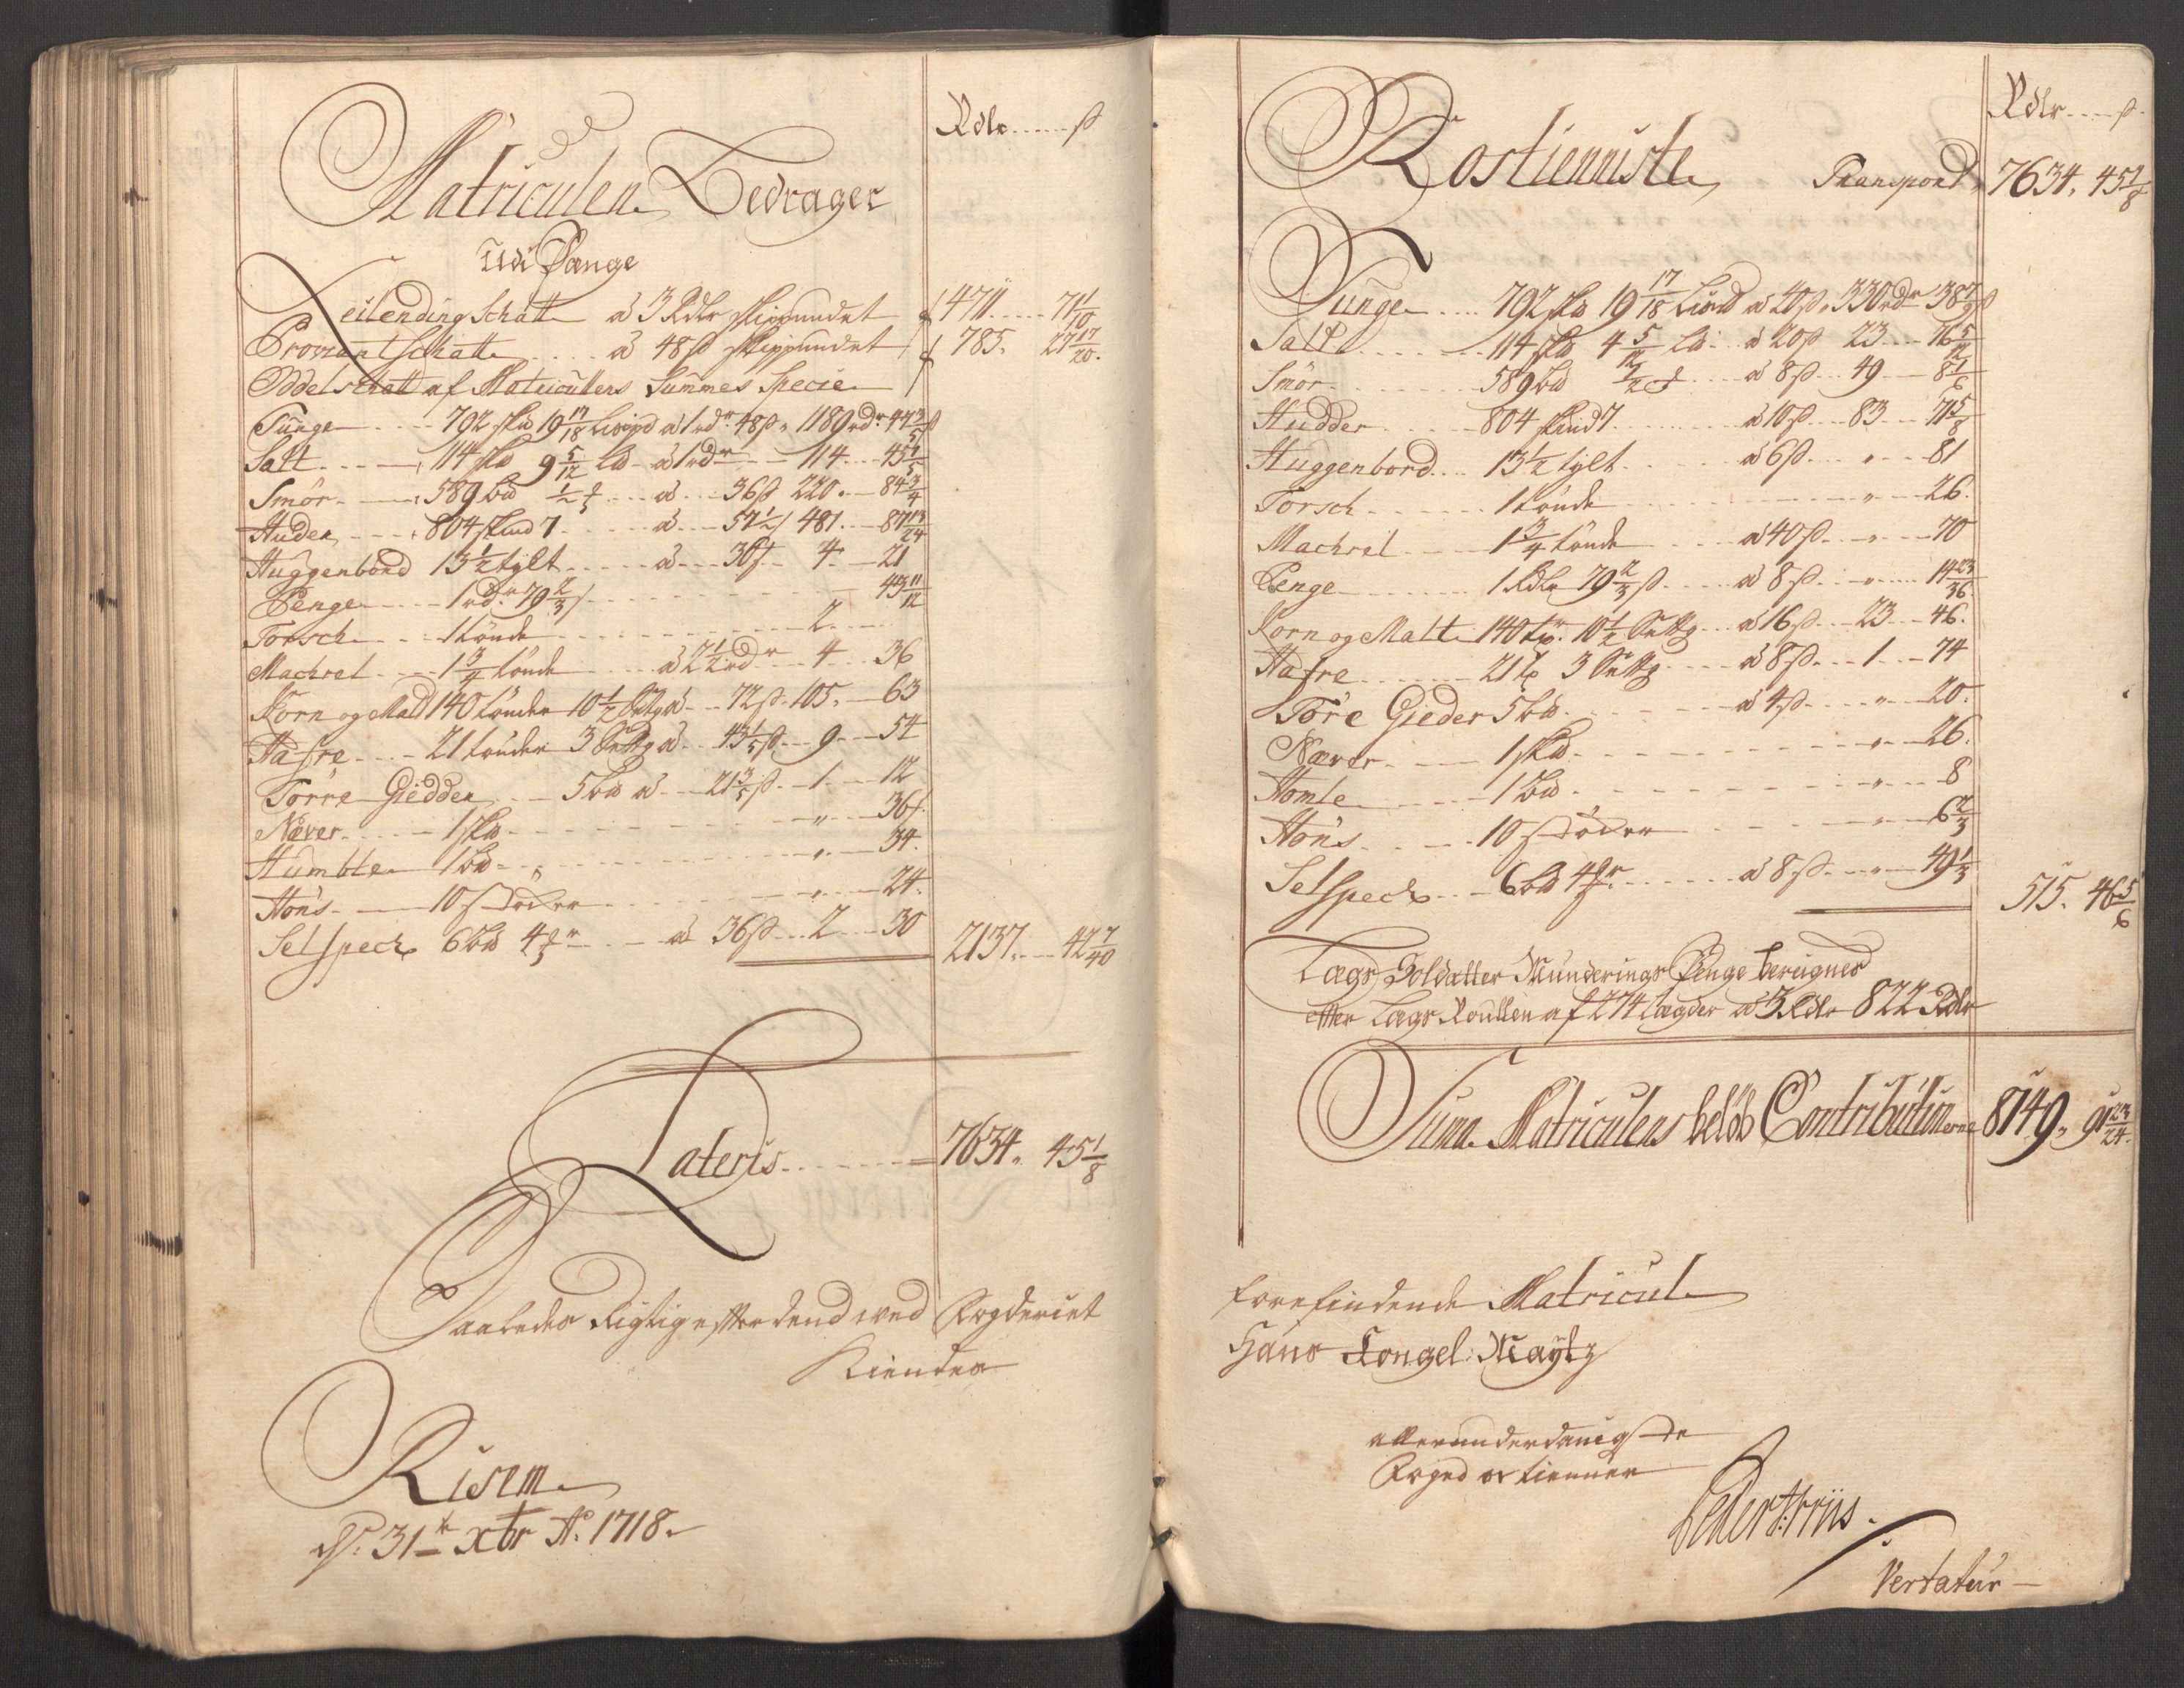 Rdlr ..... ß
Matriculen Bedrager
Udi Penge
Leilending Schatt à 3 Rdlr skippundet 4711 ..... 71 1/10
Proviant Schatt .... à 48 ß skippundet 785. 27 17/20.
Oddelschatt af Matricullens Summes Specie
Tunge .... 792 skd 19 17/18 Lispd à 1 rdr 48 ß. 1189 rdr 44 3/5 ß
Salt .... 114 skd 9 5/12 Ld à 1 rdr 114 ... 45 1/5
Smör 589 bd 1/2 à ... 36 ß 220. 84 3/4
Huder 804 skind 7 à 57 1/2 481. 87 13/24
Huggenbord 13 1/2 tylt ..... à 30 ß 4. 21
Penge 1 rdr 79 2/3 ß 43 11/12
Torsch 1 tönde 2.
Machrel 1 3/4 tönde à 2 1/2 rdr 4 36
Korn og Malt 140 tönder 10 1/2 Sættg à 72 ß. 105. 63
Hafre 21 tönder 3 Sættg à 43 1/5 ß 9 54
Törre Giedder 5 bd à 21 3/5 ß 1 12
Næver 1 skd „ 36 ß.
Humble 1 bd „ 34.
Höns 10 stöcker „ 24.
Selspeck 6 bd 4 à 36 ß 2 30 2137. 42 7/40
Lateris ........ 7634. 45 1/8
Saaledes Rigtig efter dend ved Fogderiet
Kiendes
Risem
d. 31te xbr Ao. 1718.
Rdlr .... ß.
Rostienniste Transport 7634. 45 1/8
Tunge .... 792 skd 19 17/18 Lispd à 40 ß. 330 rdr 38 7/9 ß
Salt ....... 114 skd 4 5/12 Ld à 20 ß 23 76 5/12
Smör 589 bd 1/2 à 8 ß 49 8 1/6
Hudder 804 skind 7 à 10 ß 83 71 5/8
Huggenbord 13 1/2 tylt à 6 ß „ 81
Torsch 1 tönde „ 26.
Machrel 1 3/4 tönde à 40 ß „ 70
Penge 1 Rdlr 79 2/3 ß à 8 ß „ 14 23/36.
Korn og Malt 140 tr. 10 1/2 Sættg à 16 ß 23 46.
Hafre 21 t 3 Sættg à 8 ß 1 74
Töre Gieder 5 bd à 4 ß „ 20.
Næver 1 skd „ 26.
Homle 1 bd „ 8
Höns 10 stöcker „ 6 2/3
Selspeck 6 bd 4 à 8 ß „ 49 1/3 515. 46 5/6
Lægs Soldatter Munderings Penge berügnes
efter Lægs Roullen af 274 Lægder à 3 Rdlr 822 Rdlr
Suma Matriculens belöb Contributionerne 8149. 91 23/24.
forefindende Matricul
Hans Kongel: Mayts
allerunderdanigste
Foged og tienner
Peder Friis.
Vertatur